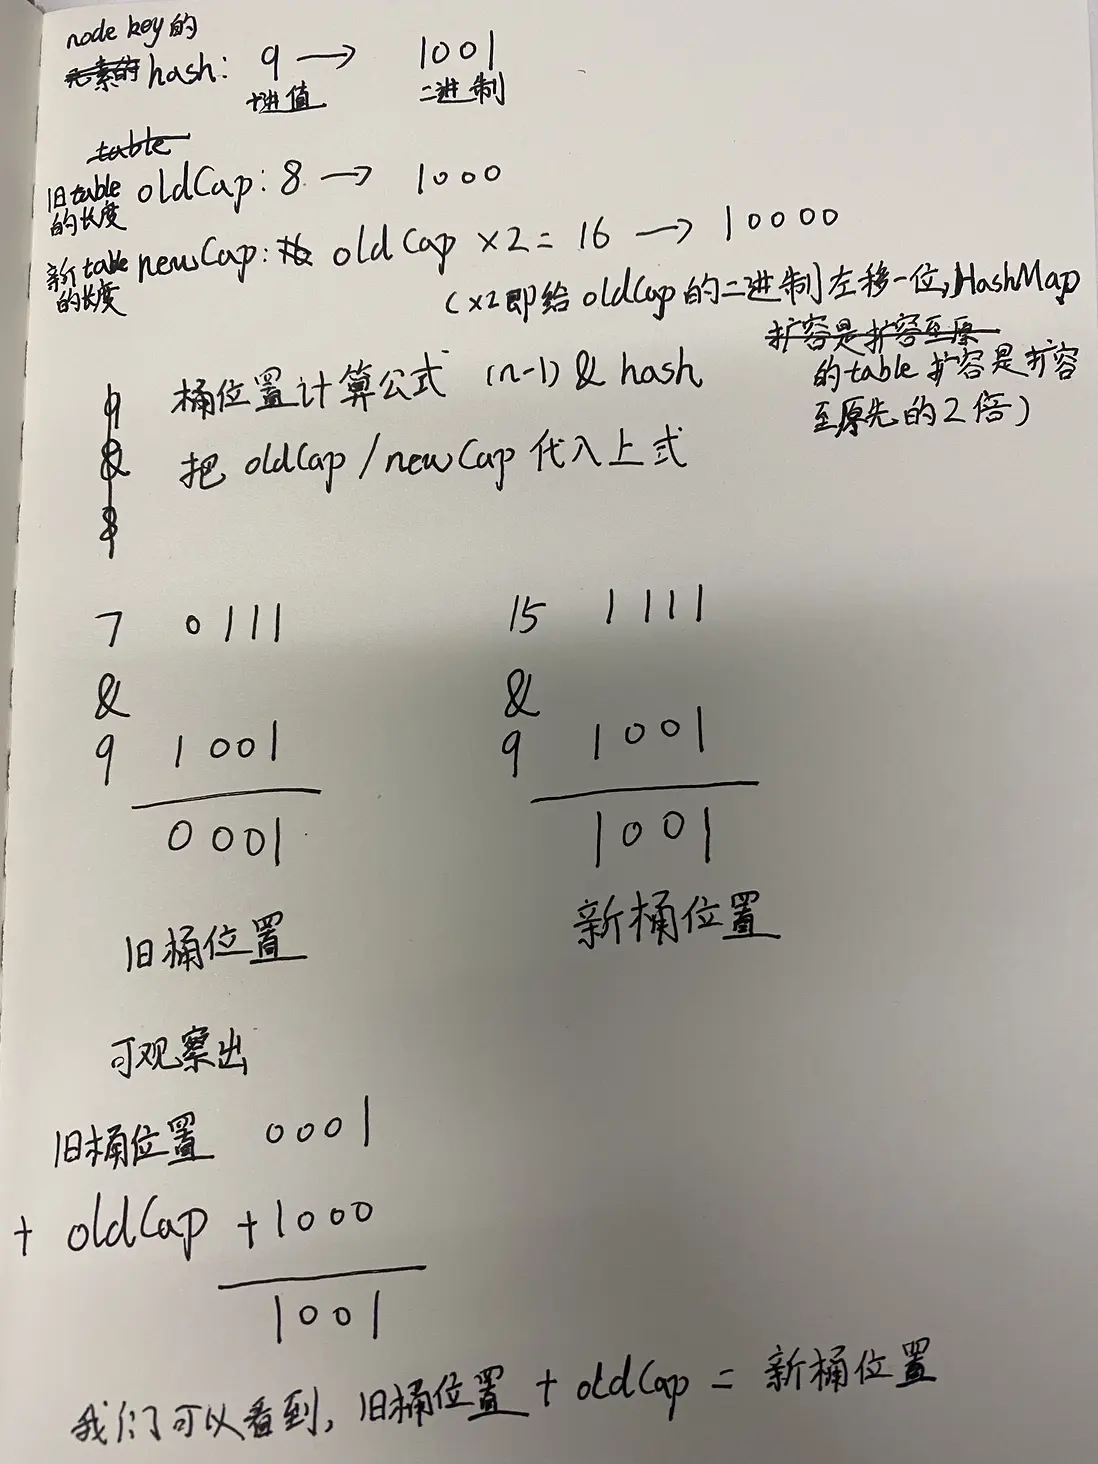 node key的
元素的hash: 9 → 1001
十进值 二进制
table
旧table的长度 oldCap: 8 → 1000
新table的长度 newCap: oldCap ×2 = 16 → 10000
(×2即给oldCap的二进制左移一位,HashMap
扩容是扩容至原
的table扩容是扩容
至原先的2倍)
桶位置计算公式 (n-1) & hash
把 oldCap / newCap 代入上式
9
&
8
7 0111 15 1111
& &
9 1001 9 1001
0001 1001
旧桶位置 新桶位置
可观察出
旧桶位置 0001
+ oldCap +1000
1001
我们可以看到, 旧桶位置 + oldCap = 新桶位置